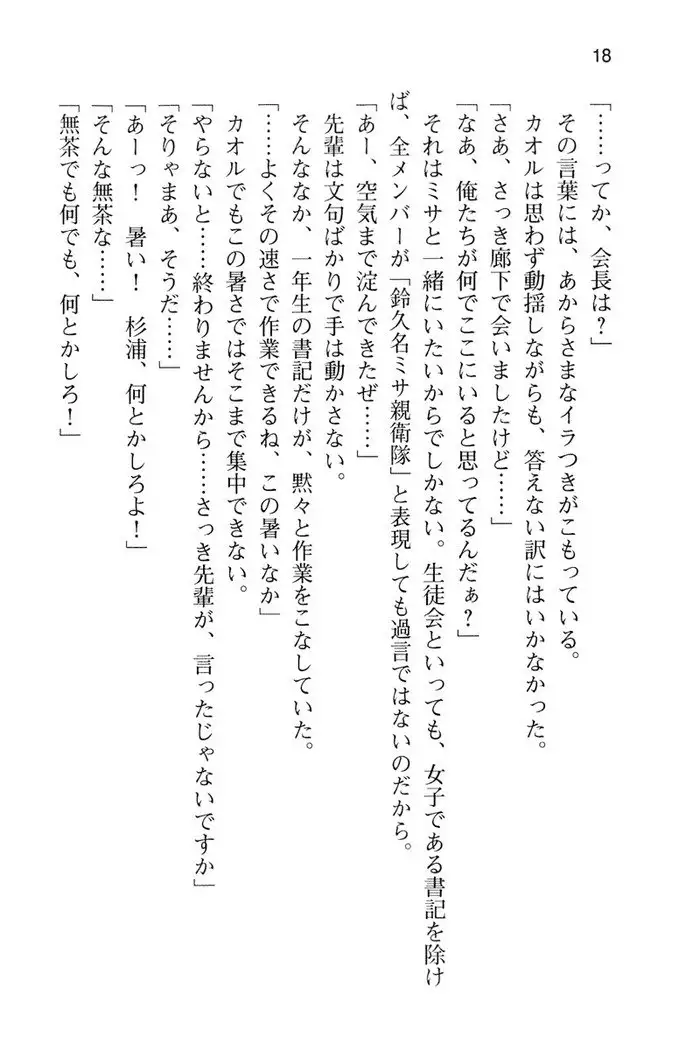 18
「……ってか、会長は？」
その言葉には、あからさまなイラつきがこもっている。
カオルは思わず動揺しながらも、答えない訳にはいかなかった。
「さあ、さっき廊下で会いましたけど……」
「なあ、俺たちが何でここにいると思ってるんだぁ？」
それはミサと一緒にいたいからでしかない。生徒会といっても、女子である書記を除け
ば、全メンバーが「鈴久名ミサ親衛隊」と表現しても過言ではないのだから。
「あー、空気まで淀んできたぜ……」
先輩は文句ばかりで手は動かさない。
そんななか、一年生の書記だけが、黙々と作業をこなしていた。
「……よくその速さで作業できるね、この暑いなか」
カオルでもこの暑さではそこまで集中できない。
「やらないと……終わりませんから……さっき先輩が、言ったじゃないですか」
「そりゃまあ、そうだ……」
「あーっ！　暑い！　杉浦、何とかしろよ！」
「そんな無茶な……」
「無茶でも何でも、何とかしろ！」